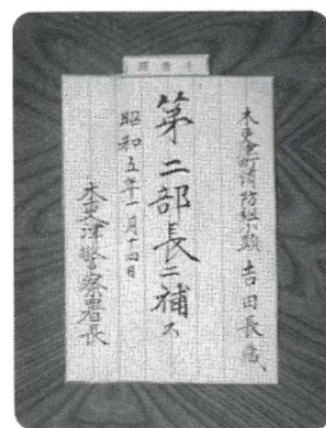 木更津町消防組小頭 吉田長蔵
第二部長ニ補ス
昭和五年一月十四日
木更津警察署長